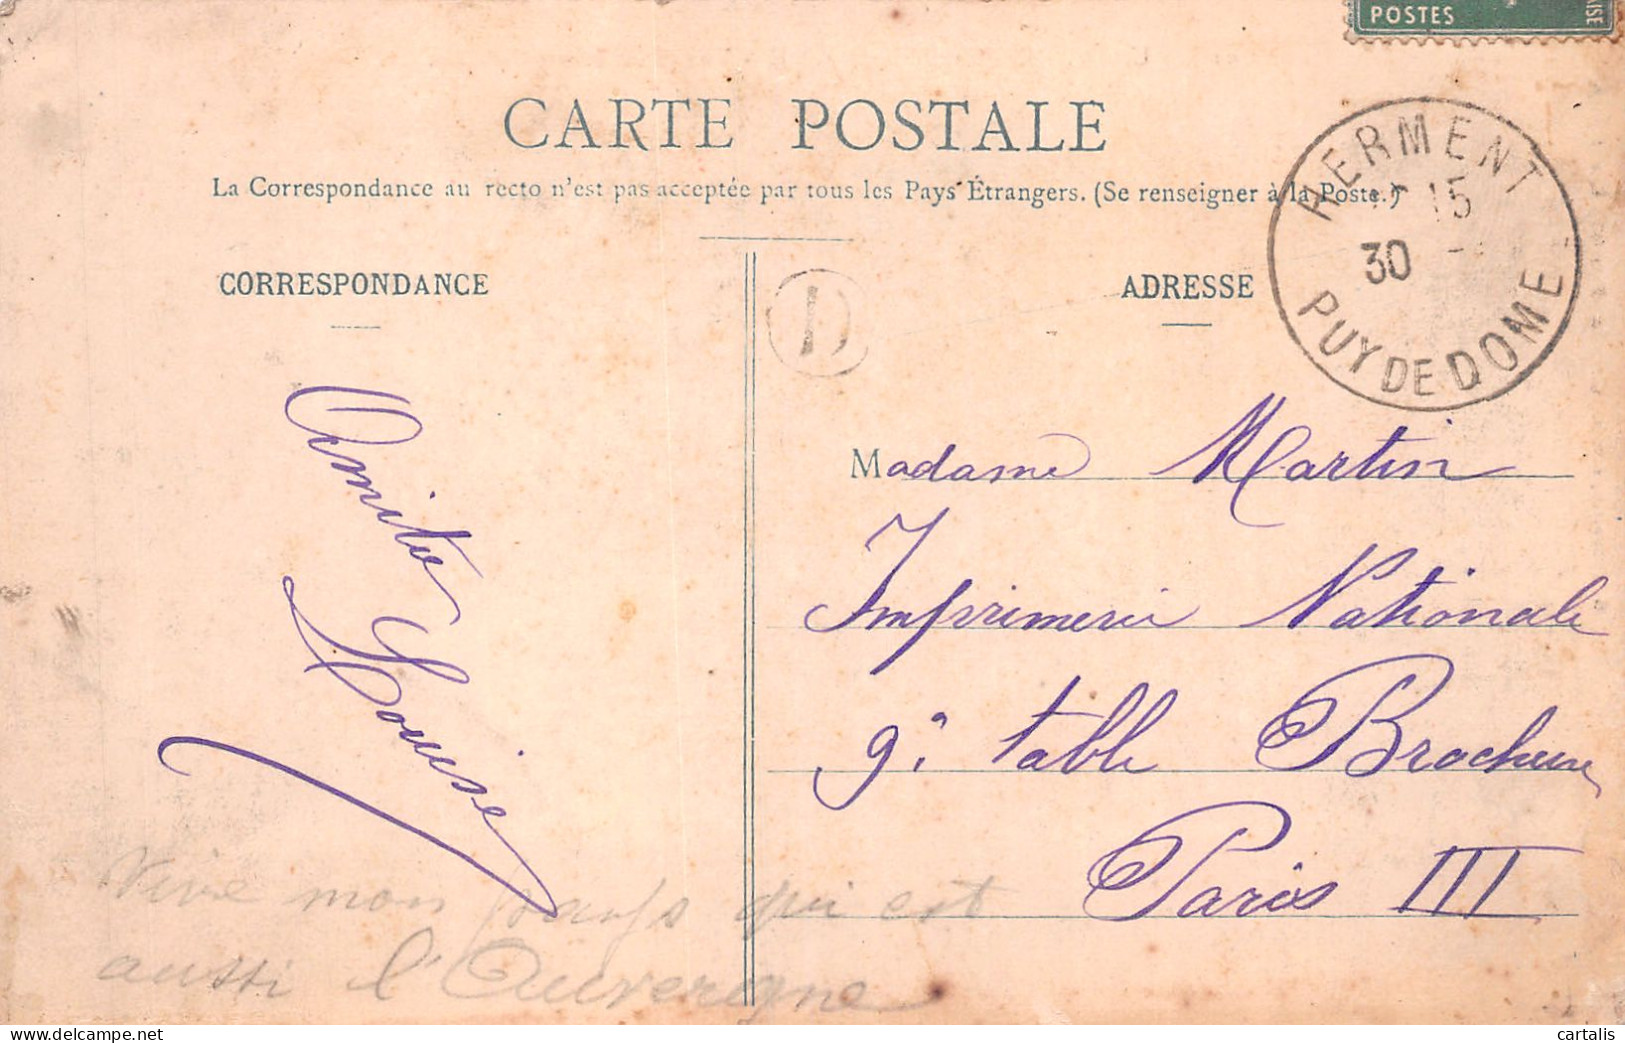 POSTES
CARTE POSTALE
La Correspondance au recto n'est pas acceptée par tous les Pays Étrangers. (Se renseigner à la Poste.)
HERMENT
15
30
PUY DE DOME
CORRESPONDANCE
ADRESSE
D
Amitié
Louise
Madame Martin
Imprimerie Nationale
9e table Brochure
Paris III
Vive mon pays qui est
aussi l'Auvergne
cartalis